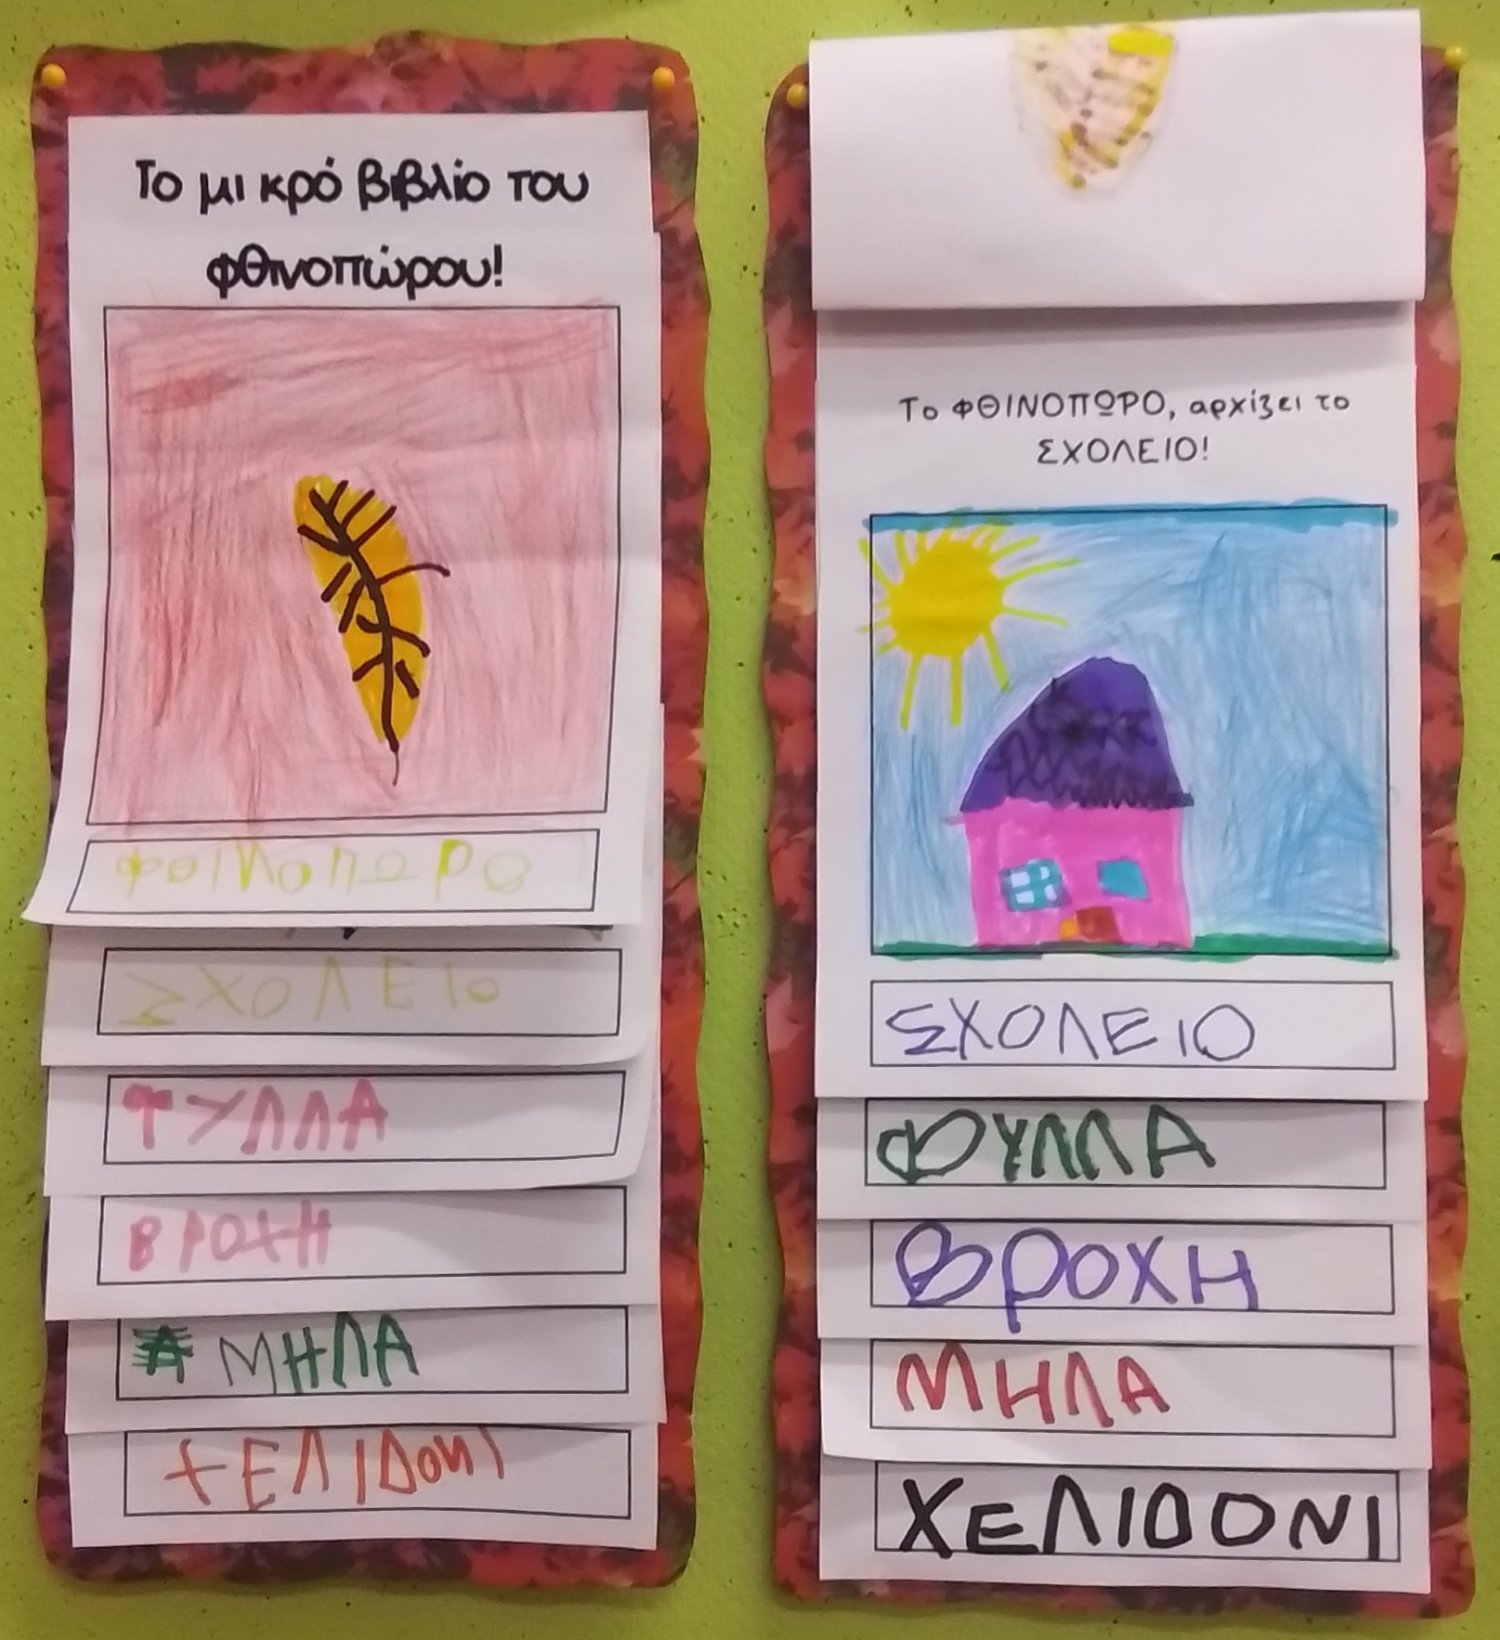 Το μικρό βιβλίο του
φθινοπώρου!
ΦΘΙΝΟΠΩΡΟ
ΣΧΟΛΕΙΟ
ΦΥΛΛΑ
ΒΡΟΧΗ
ΜΗΛΑ
ΧΕΛΙΔΟΝΙ
Το ΦΘΙΝΟΠΩΡΟ, αρχίζει το
ΣΧΟΛΕΙΟ!
ΣΧΟΛΕΙΟ
ΦΥΛΛΑ
ΒΡΟΧΗ
ΜΗΛΑ
ΧΕΛΙΔΟΝΙ